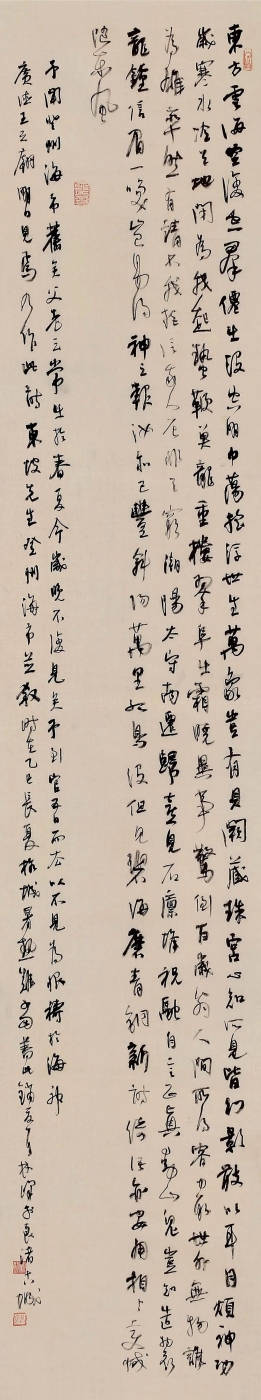 東方雲海空復空羣僊出沒空明中蕩搖浮世生萬象豈有貝闕藏珠宮心知所見皆幻影敢以耳目煩神功
歲寒水冷天地閉為我起蟄鞭魚龍重樓翠阜出霜曉異事驚倒百歲翁人間所得容力取世外無物誰
為雄率然有請不我拒信我人厄非天窮潮陽太守南遷歸喜見石廩堆祝融自言正直動山鬼豈知造物哀
龍鍾信眉一笑豈易得神之報汝亦已豐斜陽萬里孤鳥沒但見碧海磨青銅新詩綺語亦安用相與變滅
隨東風
予聞登州海市舊矣父老云常出於春夏今歲晚不復見矣予到官五日而去以不見為恨禱於海神
廣德王之廟明日見焉乃作此詩東坡先生登州海市並敘時在乙巳長夏杭城暑熱難當書此